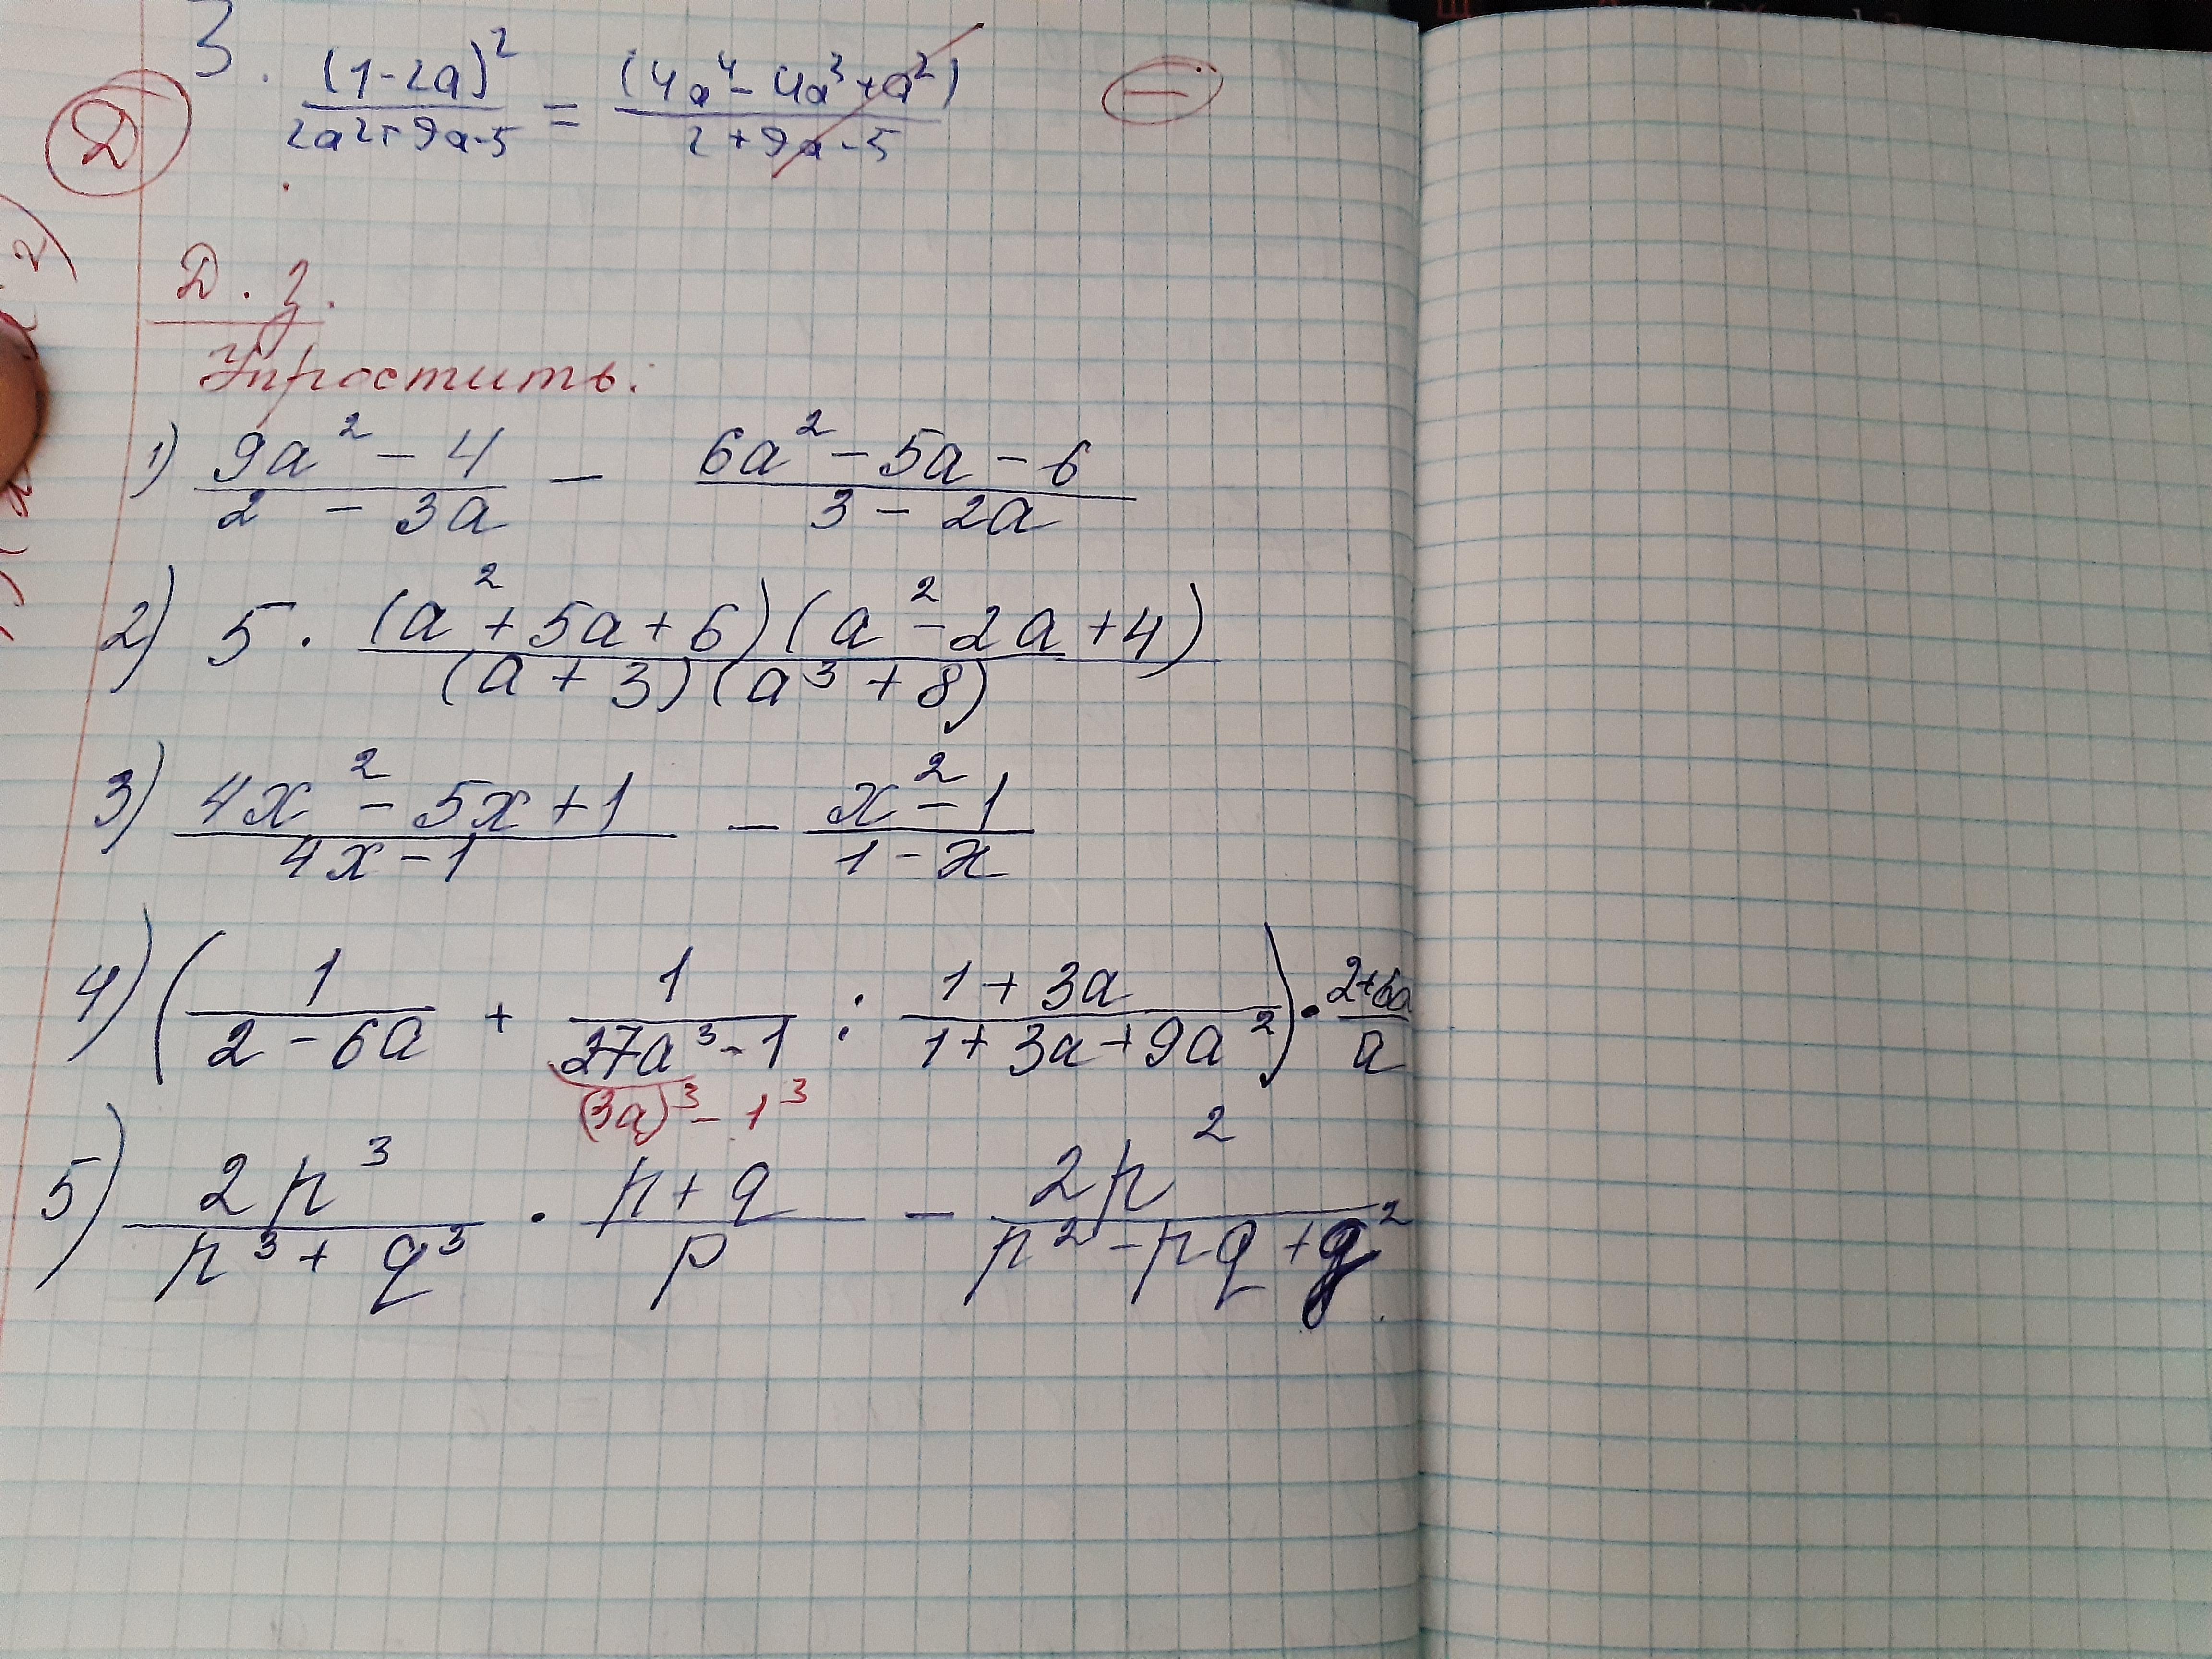 3. (1-2a)²/(2a2+9a-5) = (4a⁴-4a³+a²)/(2+9a-5) −
2
Д.з.
Упростить.
1) (9a²-4)/(2-3a) - (6a²-5a-6)/(3-2a)
2) 5·(a²+5a+6)(a²-2a+4)/((a+3)(a³+8))
3) (4x²-5x+1)/(4x-1) - (x²-1)/(1-x)
4) (1/(2-6a) + 1/(27a³-1) : (1+3a)/(1+3a+9a²))·(2+6a)/a
(3a)³-1³
5) 2p³/(p³+q³) · (p+q)/p - 2p²/(p²-pq+q²)